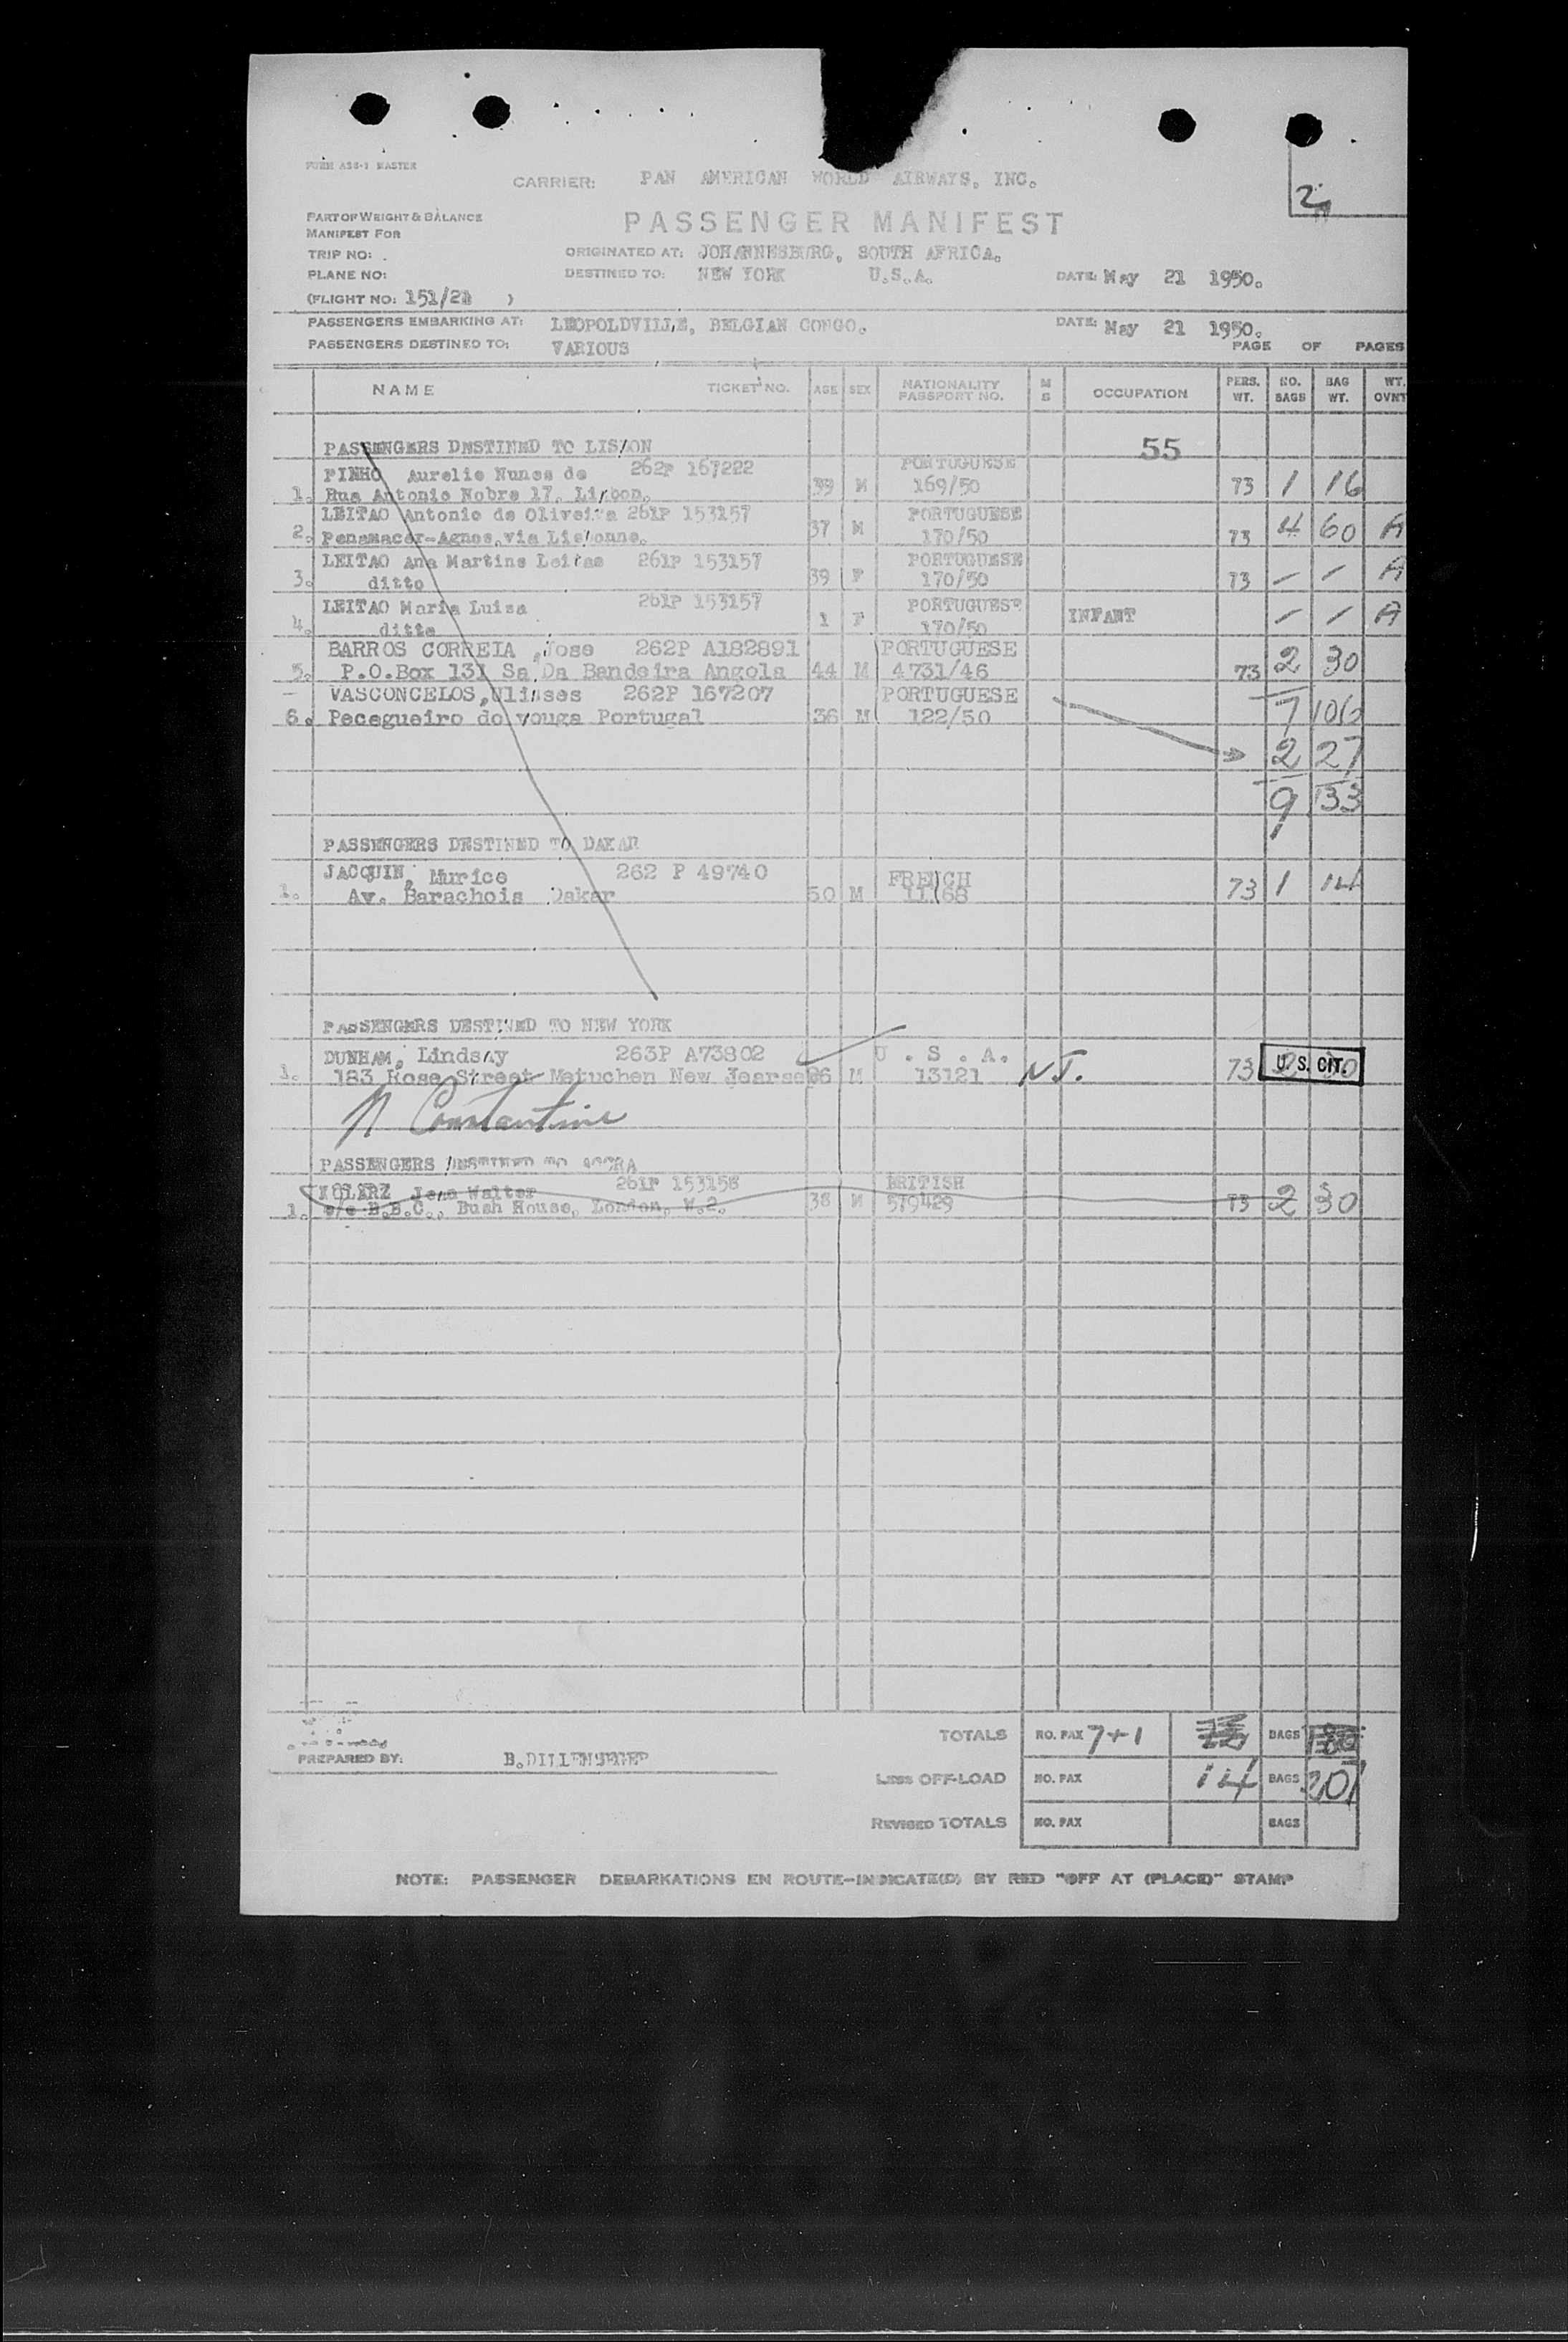 FORM ASS-1 MASTER
CARRIER: PAN AMERICAN WORLD AIRWAYS, INC.
2
PART OF WEIGHT & BALANCE
MANIFEST FOR
PASSENGER MANIFEST
TRIP NO: .
ORIGINATED AT: JOHANNESBURG, SOUTH AFRICA.
PLANE NO:
DESTINED TO: NEW YORK U.S.A.
DATE: May 21 1950.
(FLIGHT NO: 151/21 )
PASSENGERS EMBARKING AT: LEOPOLDVILLE, BELGIAN CONGO.
DATE: May 21 1950.
PASSENGERS DESTINED TO: VARIOUS
PAGE OF PAGES
NAME TICKET NO. AGE SEX NATIONALITY PASSPORT NO. M S OCCUPATION PERS. WT. NO. BAGS BAG WT. WT. OVNT
PASSENGERS DESTINED TO LISBON 55
PINHO Aurelio Nunes de 262P 167222 PORTUGUESE
1. Rua Antonio Nobre 17. Lisbon. 39 M 169/50 73 1 16
LEITAO Antonio de Oliveira 261P 153157 PORTUGUESE
2. Penamacor-Agnos, via Lisbonne. 37 M 170/50 73 4 60 A
LEITAO Ana Martins Leitao 261P 153157 PORTUGUESE
3. ditto 39 F 170/50 73 — — A
LEITAO Maria Luisa 261P 153157 PORTUGUESE
4. ditto 1 F 170/50 INFANT — — A
BARROS CORREIA, Jose 262P A182891 PORTUGUESE
5. P.O.Box 131 Sa Da Bandeira Angola 44 M 4731/46 73 2 30
VASCONCELOS, Ulisses 262P 167207 PORTUGUESE
6. Pecegueiro do vouga Portugal 36 M 122/50 7 106
2 27
9 133
PASSENGERS DESTINED TO DAKAR
JACQUIN, Murice 262 P 49740 FRENCH
1. Av. Barachois Dakar 50 M 11(68 73 1 14
PASSENGERS DESTINED TO NEW YORK
DUNHAM, Lindsay 263P A73802 U.S.A.
1. 183 Rose Street Metuchen New Jearse 36 M 13121 NJ. 73 U.S. CIT.
N Constantine
PASSENGERS DESTINED TO ACCRA
KOLARZ Jena Walter 261P 153158 BRITISH
1. c/o B.B.C., Bush House, London, W.2. 38 M 579429 73 2 30
TOTALS NO. PAX 7+1 BAGS
PREPARED BY: B.DILLENSEGER
LESS OFF-LOAD NO. PAX 14 BAGS 201
REVISED TOTALS NO. PAX BAGS
NOTE: PASSENGER DEBARKATIONS EN ROUTE-INDICATE(D) BY RED "OFF AT (PLACE)" STAMP